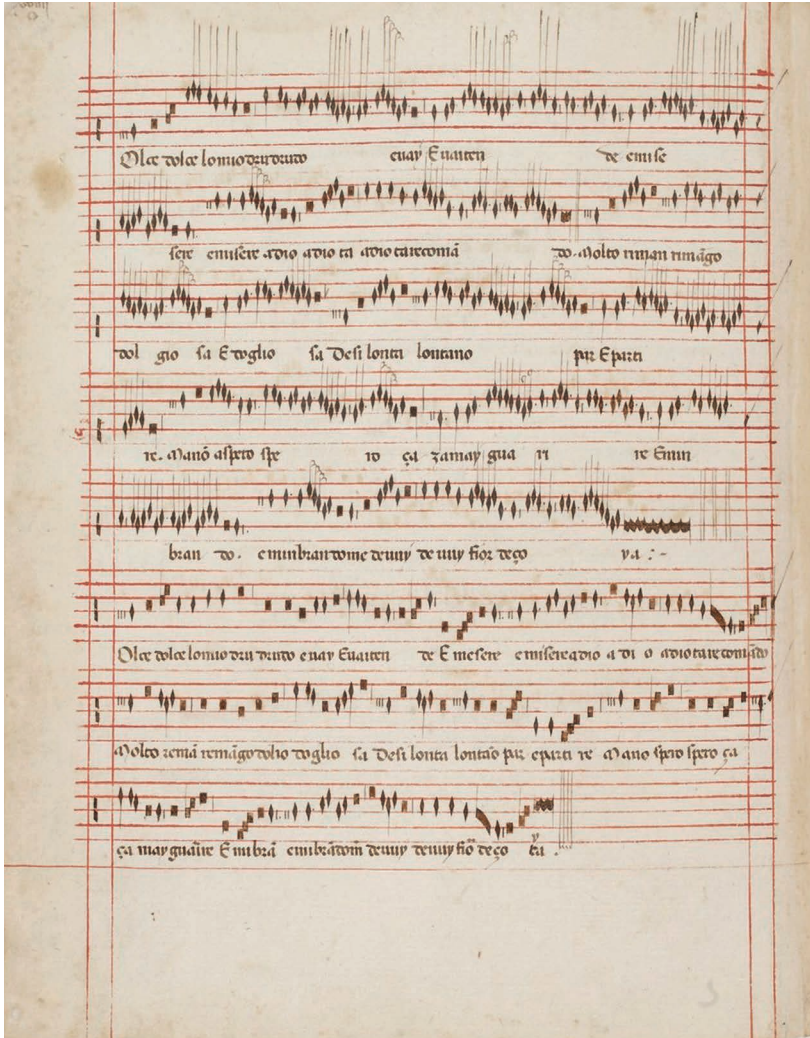 Olce dolce lo mio drudo evay Evaiten de emise
sere emisere adio adio ta adio ta recomã do. Molto riman rimãgo
dol gio sa E doglio sa Desi lonta lontano par Eparti
re. Ma nõ aspeto spe ro ça zamay gua ri re Emin
bran do. e minbrandome de vuy de vuy fior de ço ya :-
Olce dolce lo mio dru drudo e vay Evaiten de E mesere e misere adio a di o adio ta recomãdo
Molto remã remãgo dolio doglio sa Desi lonta lontão par eparti re Ma no spero spero ça
ça may guarire E mibrã e mibrãdom de vuy de vuy fior de ço ya .